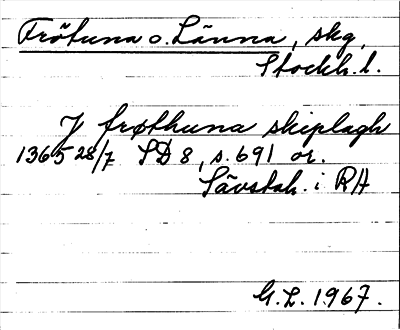 Frötuna o. Länna, skg,
Stockh. l.
J frøthuna skiplagh
1365 28/7 SD 8, s. 691 or.
Sävstah. i RA
G.L. 1967.